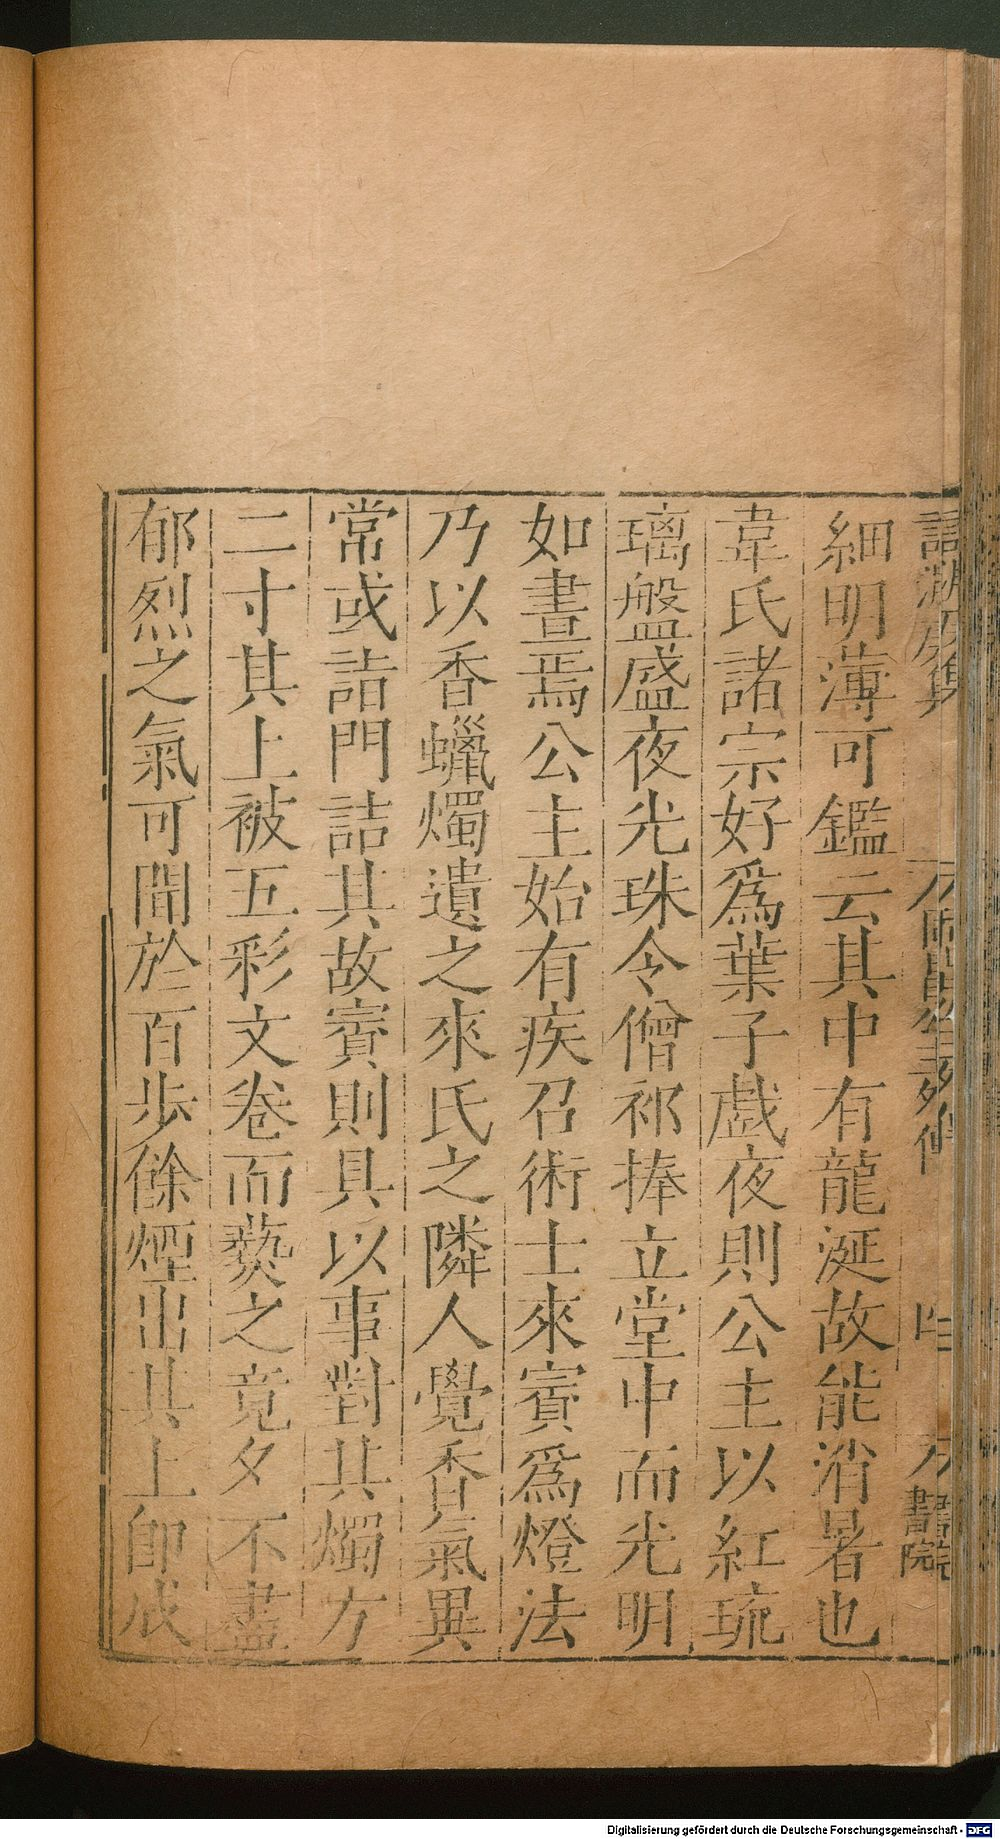 細明薄可鑑云其中有龍涎故能消暑也
韋氏諸宗好爲葉子戲夜則公主以紅琉
璃盤盛夜光珠令僧祁捧立堂中而光明
如晝焉公主始有疾召術士來賓爲燈法
乃以香蠟燭遺之來氏之隣人覺香氣異
常或詣門詰其故賓則具以事對其燭方
二寸其上被五彩文卷而爇之竟夕不盡
郁烈之氣可聞於百步餘煙出其上卽成
Digitalisierung gefördert durch die Deutsche Forschungsgemeinschaft - DFG